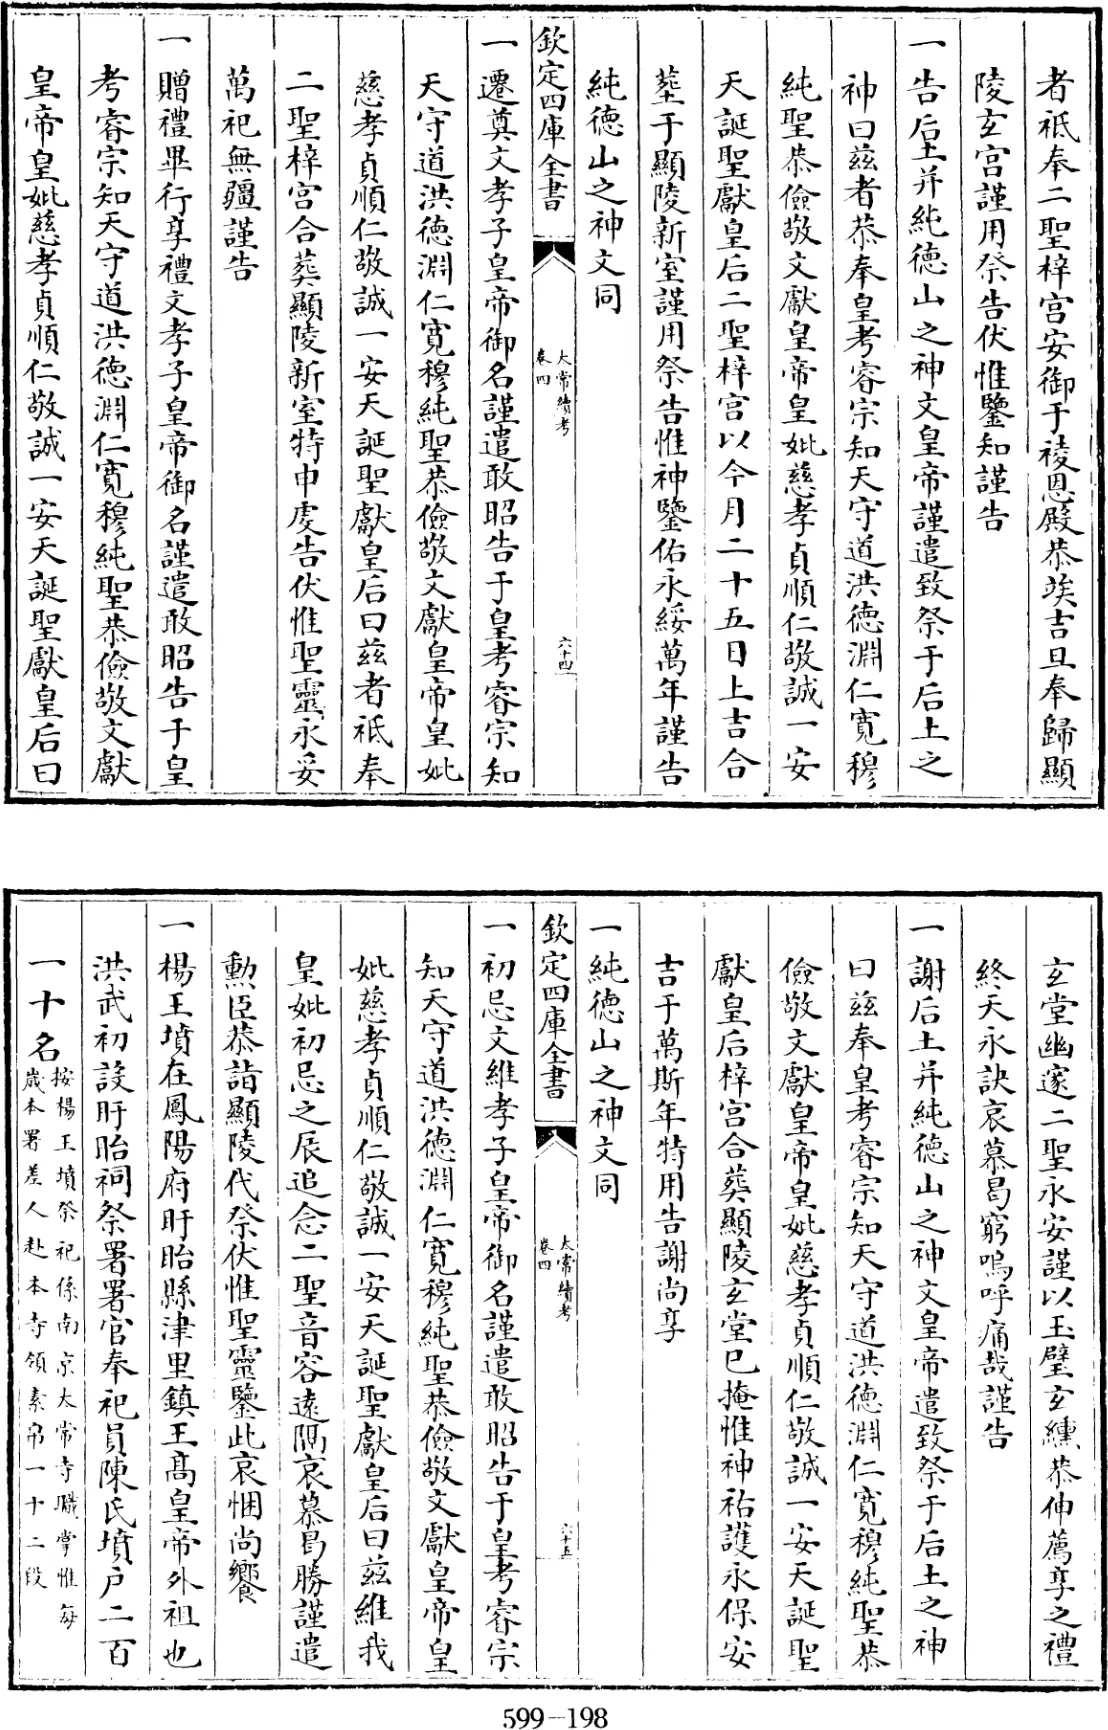 者祗奉二聖梓宮安御于祾恩殿恭竢吉旦奉歸顯
陵玄宮謹用祭告伏惟鑒知謹告
一告后土并純德山之神文皇帝謹遣致祭于后土之
神曰兹者恭奉皇考睿宗知天守道洪德淵仁寛穆
純聖恭儉敬文獻皇帝皇妣慈孝貞順仁敬誠一安
天誕聖獻皇后二聖梓宮以今月二十五日上吉合
塟于顯陵新室謹用祭告惟神鑒佑永綏萬年謹告
純德山之神文同
欽定四庫全書
太常續考
卷四
六十四
一遷奠文孝子皇帝御名謹遣敢昭告于皇考睿宗知
天守道洪德淵仁寛穆純聖恭儉敬文獻皇帝皇妣
慈孝貞順仁敬誠一安天誕聖獻皇后曰兹者祗奉
二聖梓宮合葬顯陵新室特申虔告伏惟聖靈永妥
萬祀無疆謹告
一贈禮畢行享禮文孝子皇帝御名謹遣敢昭告于皇
考睿宗知天守道洪德淵仁寛穆純聖恭儉敬文獻
皇帝皇妣慈孝貞順仁敬誠一安天誕聖獻皇后曰
玄堂幽邃二聖永安謹以玉璧玄纁恭伸薦享之禮
終天永訣哀慕曷窮嗚呼痛哉謹告
一謝后土并純德山之神文皇帝遣致祭于后土之神
曰兹奉皇考睿宗知天守道洪德淵仁寛穆純聖恭
儉敬文獻皇帝皇妣慈孝貞順仁敬誠一安天誕聖
獻皇后梓宮合葬顯陵玄堂已掩惟神祐護永保安
吉于萬斯年特用告謝尚享
一純德山之神文同
欽定四庫全書
太常續考
卷四
六十五
一初忌文維孝子皇帝御名謹遣敢昭告于皇考睿宗
知天守道洪德淵仁寛穆純聖恭儉敬文獻皇帝皇
妣慈孝貞順仁敬誠一安天誕聖獻皇后曰兹維我
皇妣初忌之辰追念二聖音容遠隔哀慕曷勝謹遣
勲臣恭詣顯陵代祭伏惟聖靈鑒此哀悃尚饗
一楊王墳在鳳陽府盱眙縣津里鎮王髙皇帝外祖也
洪武初設盱眙祠祭署署官奉祀員陳氏墳户二百
一十名
按楊王墳祭祀係南京太常寺職掌惟每
歲本署差人赴本寺領素帛一十二段
599-198